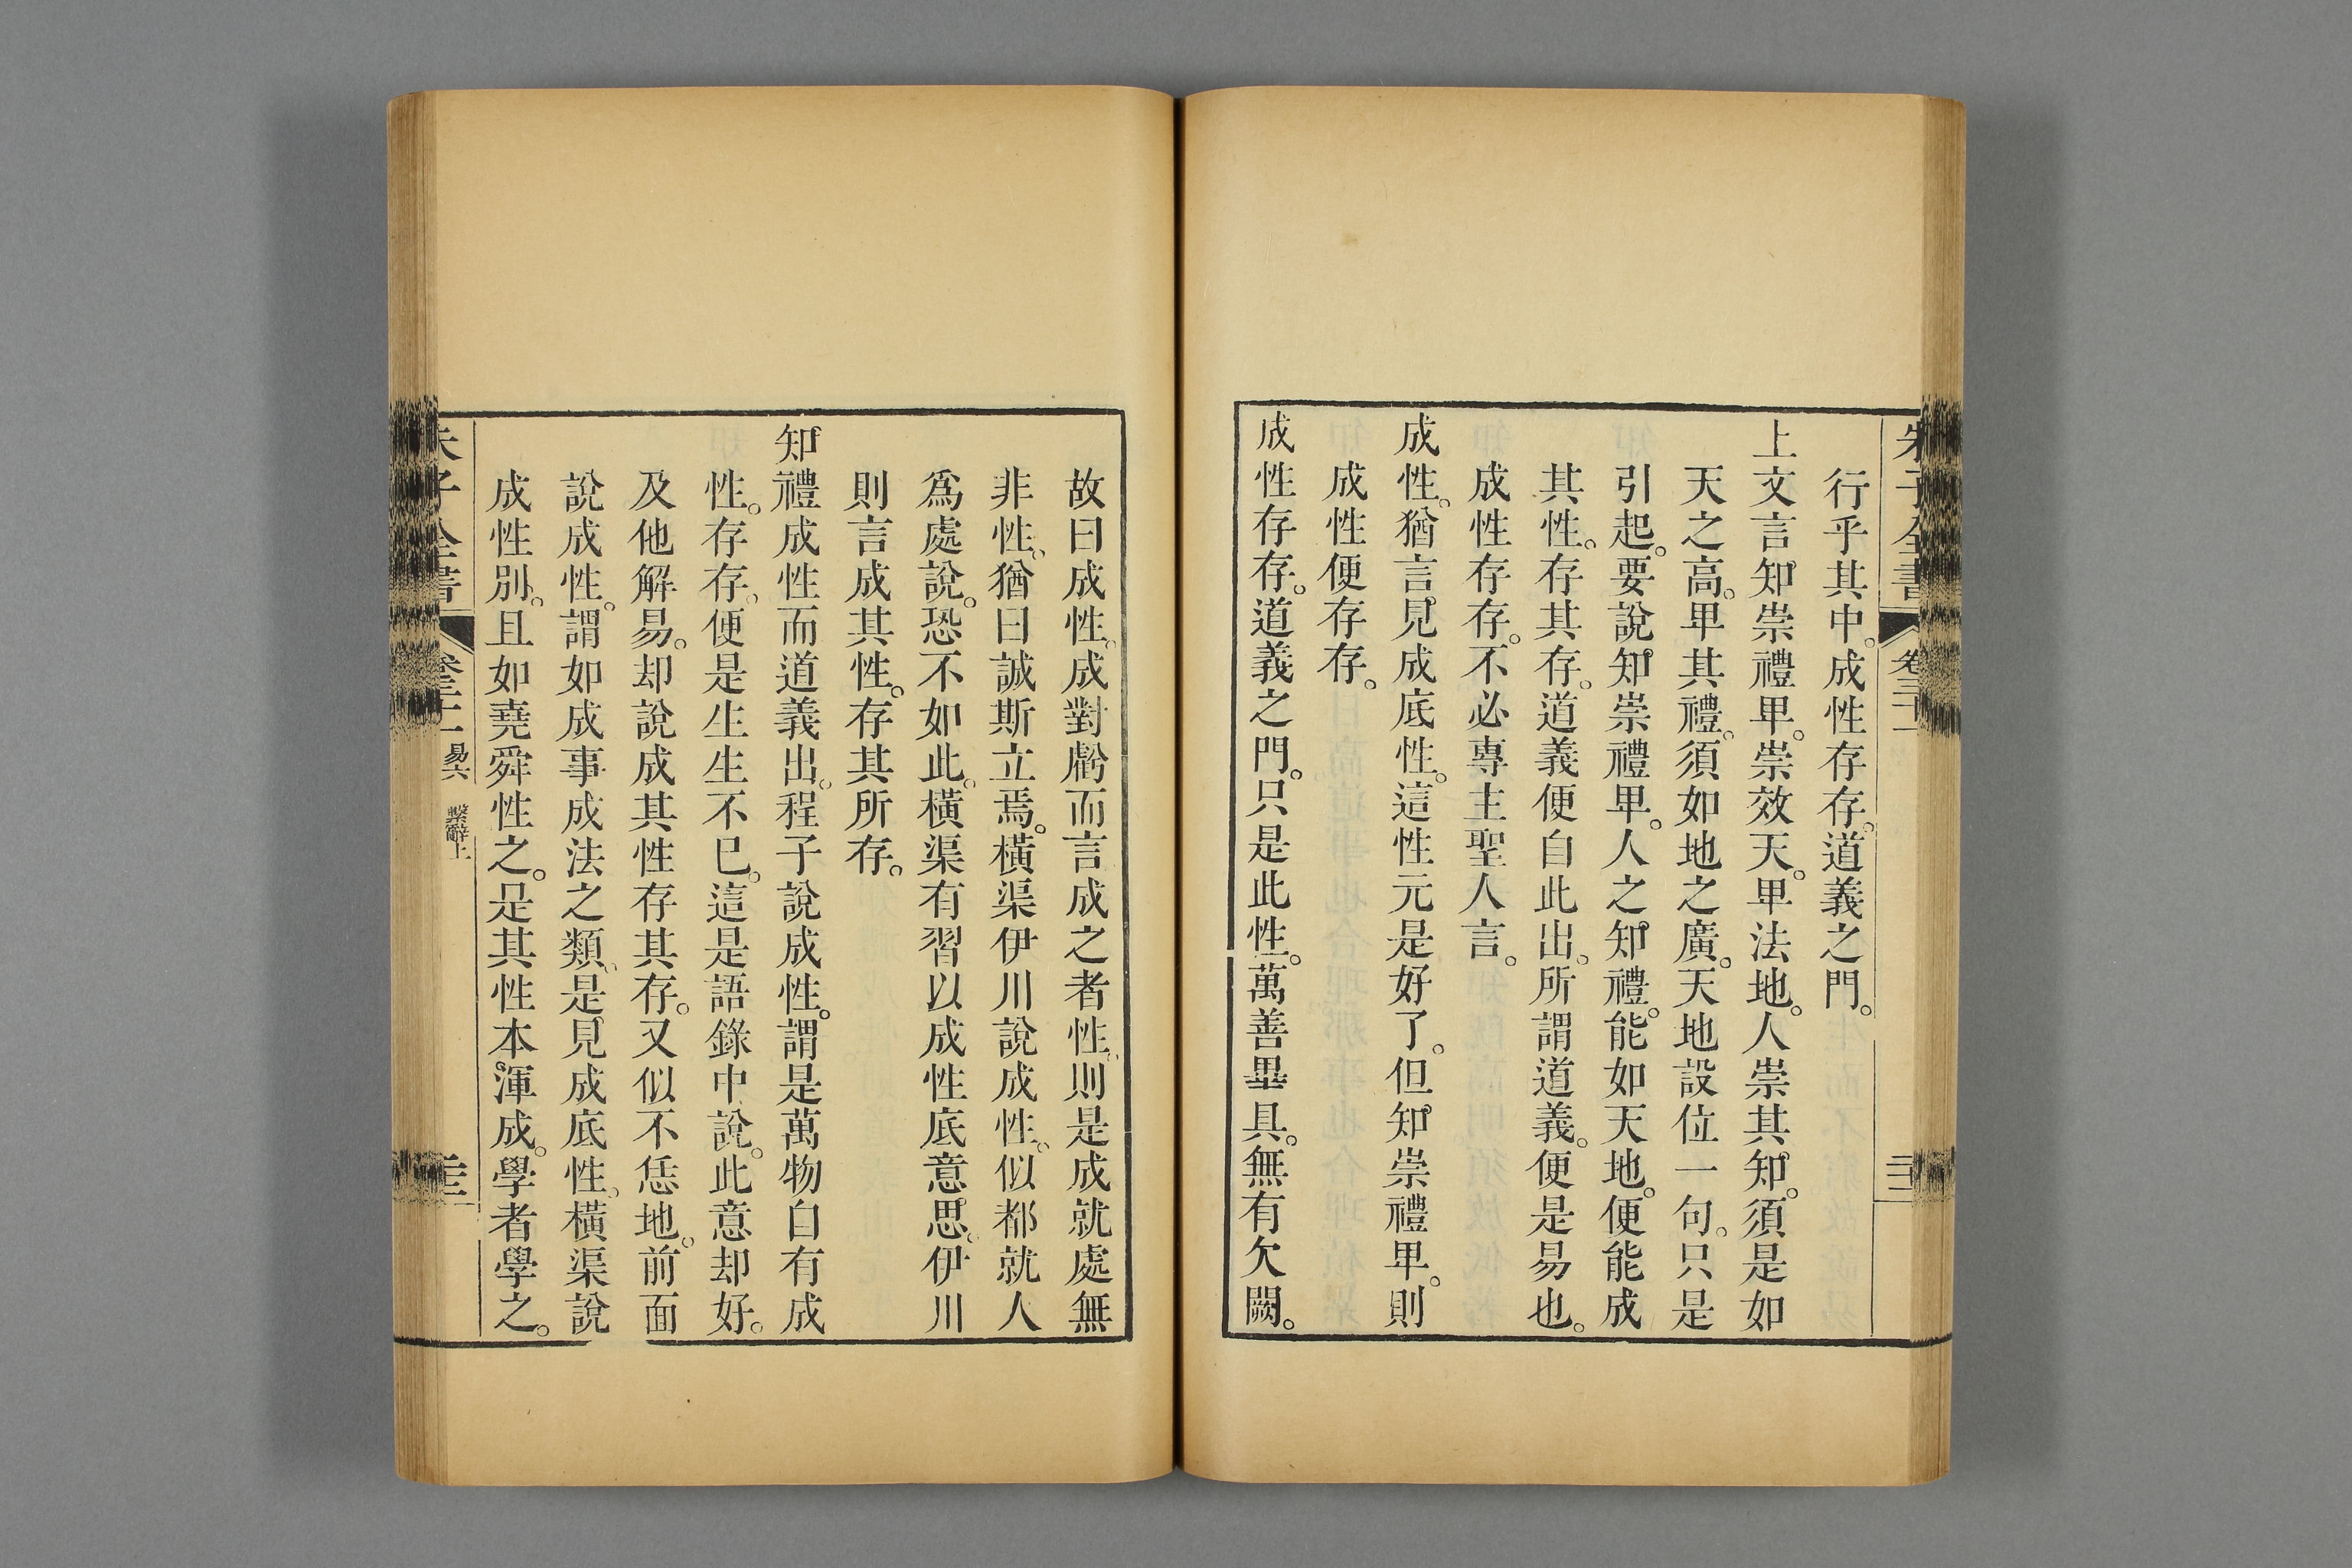 行乎其中。成性存存。道義之門。
上文言知崇禮卑。崇效天。卑法地。人崇其知。須是如
天之高。卑其禮。須如地之廣。天地設位一句。只是
引起。要說知崇禮卑。人之知禮。能如天地。便能成
其性。存其存。道義便自此出。所謂道義。便是易也。
成性存存。不必專主聖人言。
成性。猶言見成底性。這性元是好了。但知崇禮卑。則
成性便存存。
成性存存。道義之門。只是此性。萬善畢具。無有欠闕。
故曰成性。成對虧而言成之者性。則是成就處無
非性。猶曰誠斯立焉。橫渠伊川說成性。似都就人
爲處說。恐不如此。橫渠有習以成性底意思。伊川
則言成其性。存其所存。
知禮成性而道義出。程子說成性。謂是萬物自有成
性。存存。便是生生不已。這是語錄中說。此意却好。
及他解易。却說成其性存其存。又似不恁地。前面
說成性。謂如成事成法之類。是見成底性。橫渠說
成性別。且如堯舜性之。是其性本渾成。學者學之。
朱子全書 卷二十一 易六 繫辭上